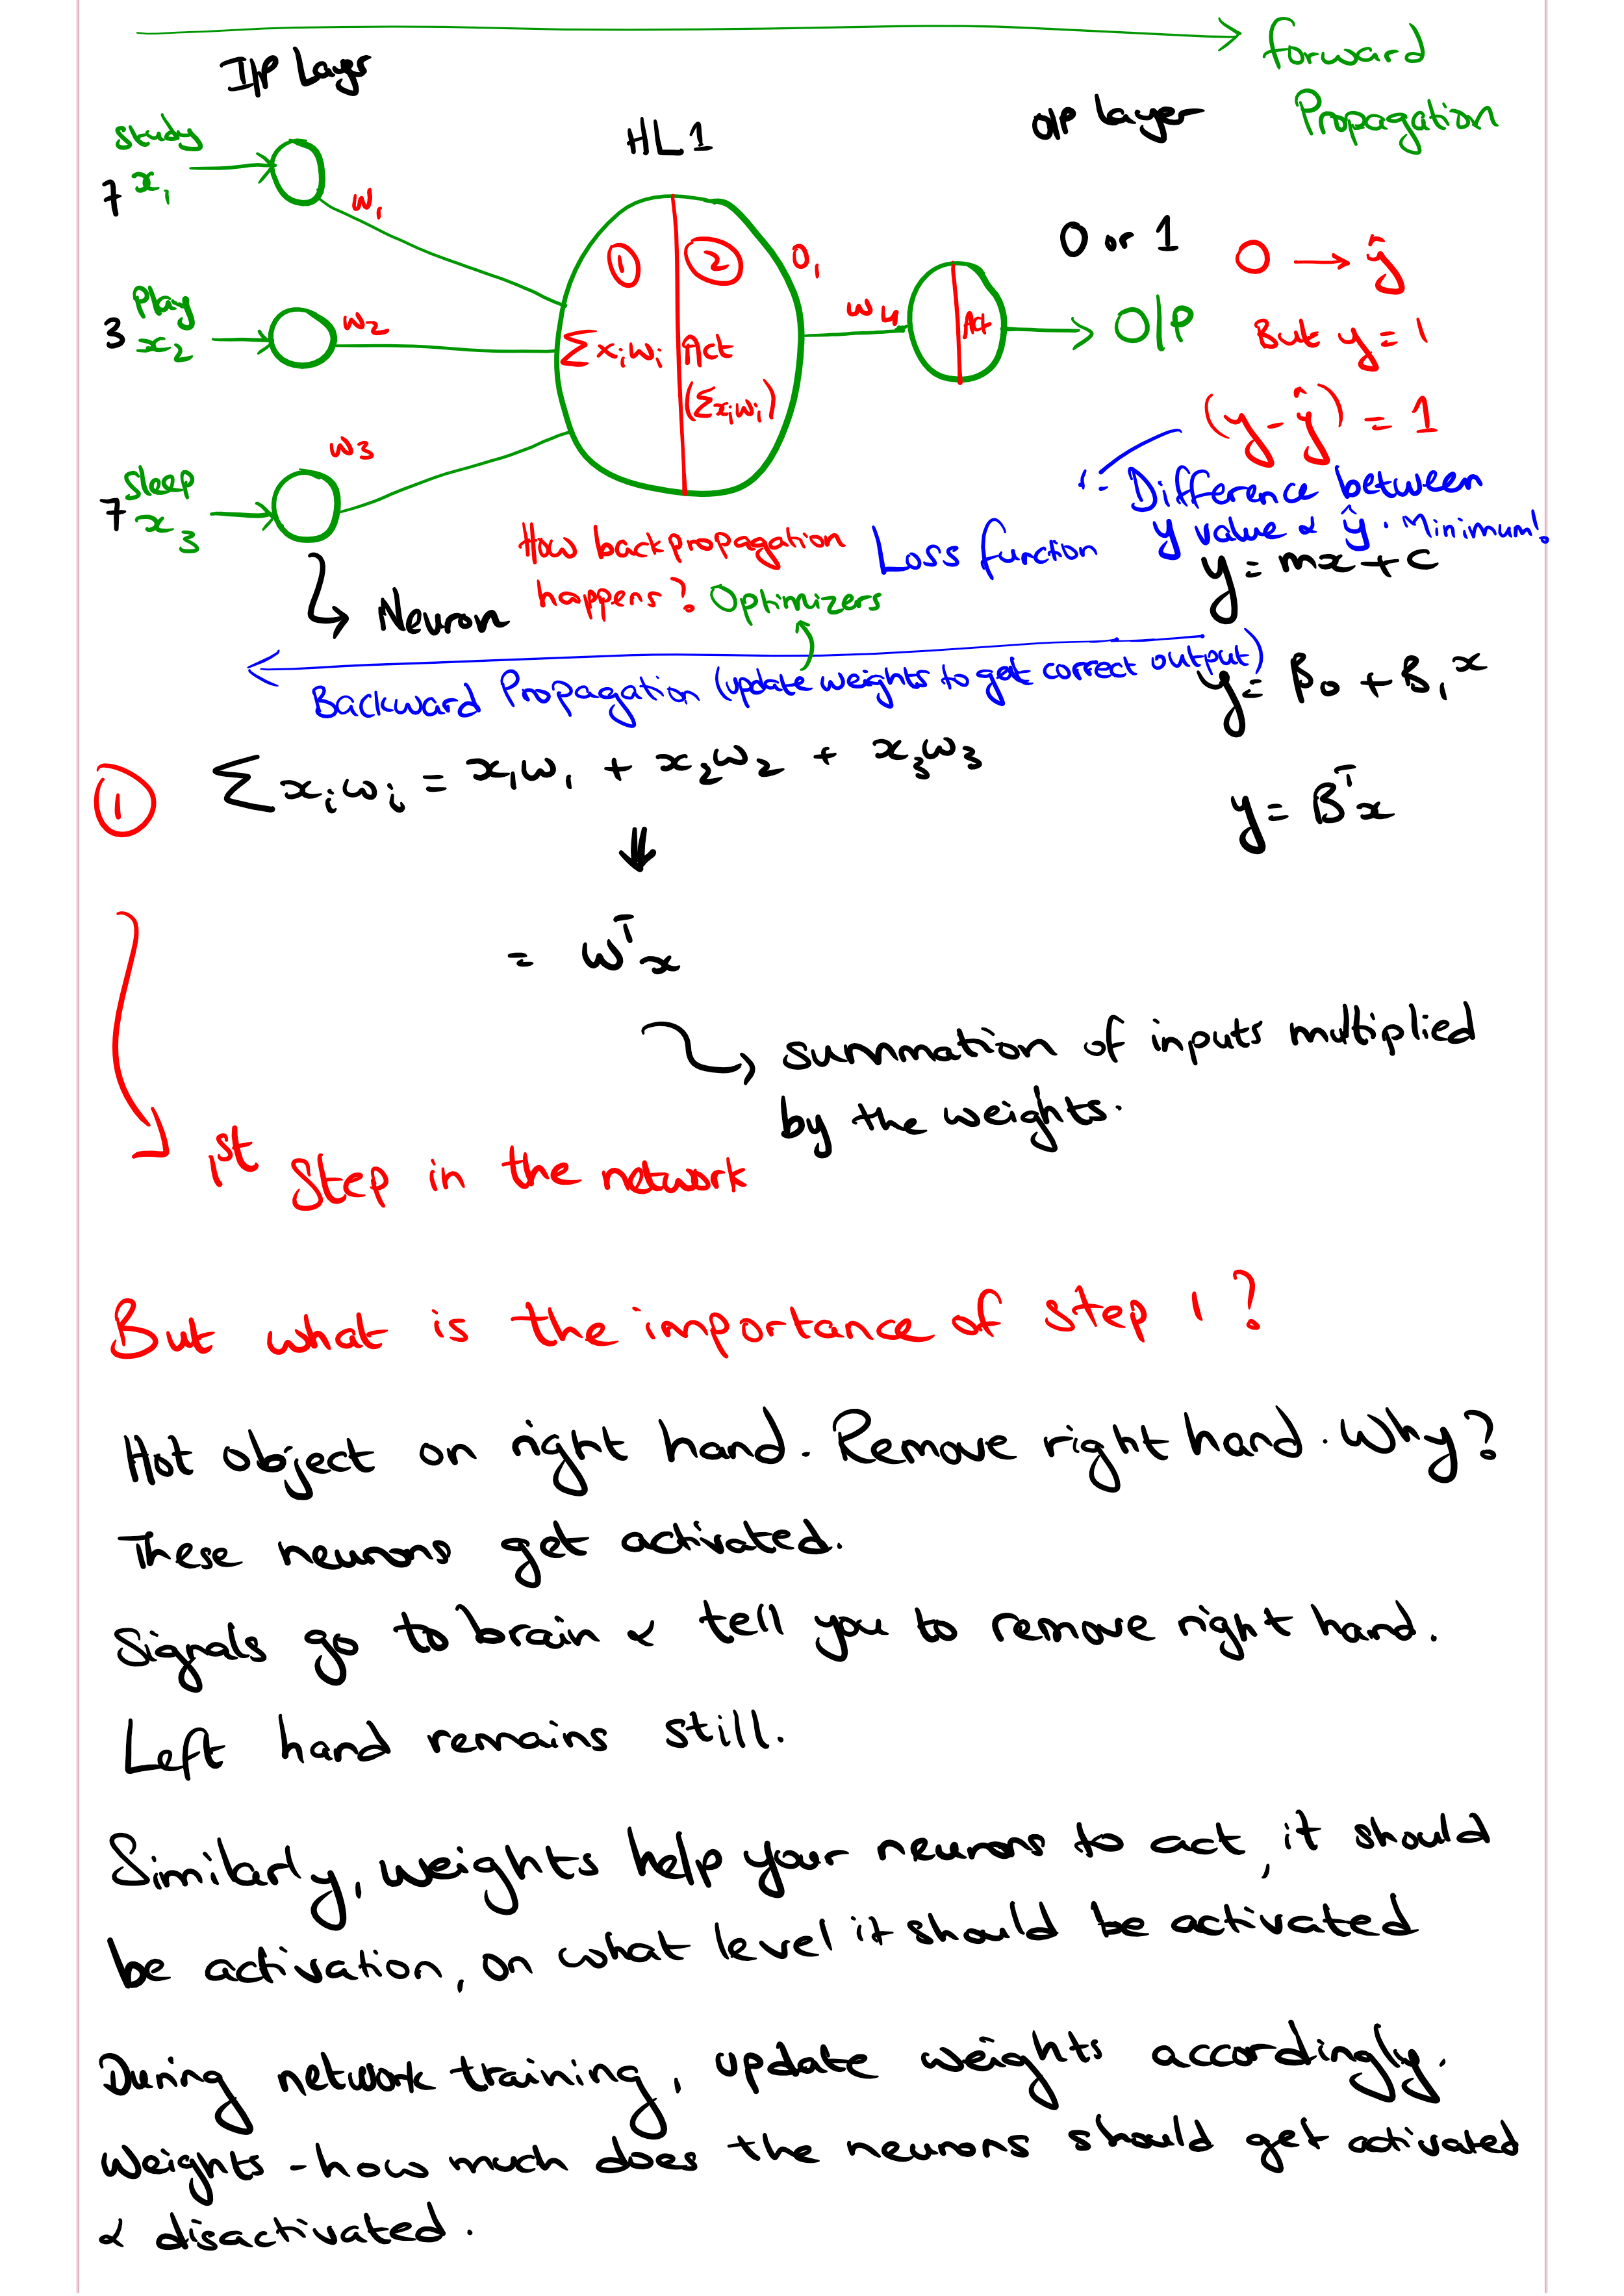 forward
Propagation
I/P Layer
HL1
O/P layer
study
7 x₁
w₁
Play
3 x₂
w₂
Sleep
7 x₃
w₃
①
②
Σxᵢwᵢ
Act
(Σxᵢwᵢ)
O₁
w₄
Act
0 or 1
O/P
0 → ŷ
But y = 1
(y - ŷ) = 1
Difference between
y value & ŷ. Minimum!
Loss function
How backpropagation
happens? Optimizers
Neuron
Backward Propagation (update weights to get correct output)
y = mx + c
y = β₀ + β₁x
y = βᵀx
① Σxᵢwᵢ = x₁w₁ + x₂w₂ + x₃w₃
= wᵀx
summation of inputs multiplied
by the weights.
1st Step in the network
But what is the importance of step 1?
Hot object on right hand. Remove right hand. Why?
These neurons get activated.
Signals go to brain & tell you to remove right hand.
Left hand remains still.
Similarly, weights help your neurons to act, it should
be activation, on what level it should be activated
During network training, update weights accordingly.
Weights - how much does the neurons should get activated
& disactivated.